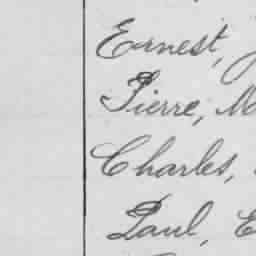 Ernest, J
Pierre, M
Charles,
Paul, E